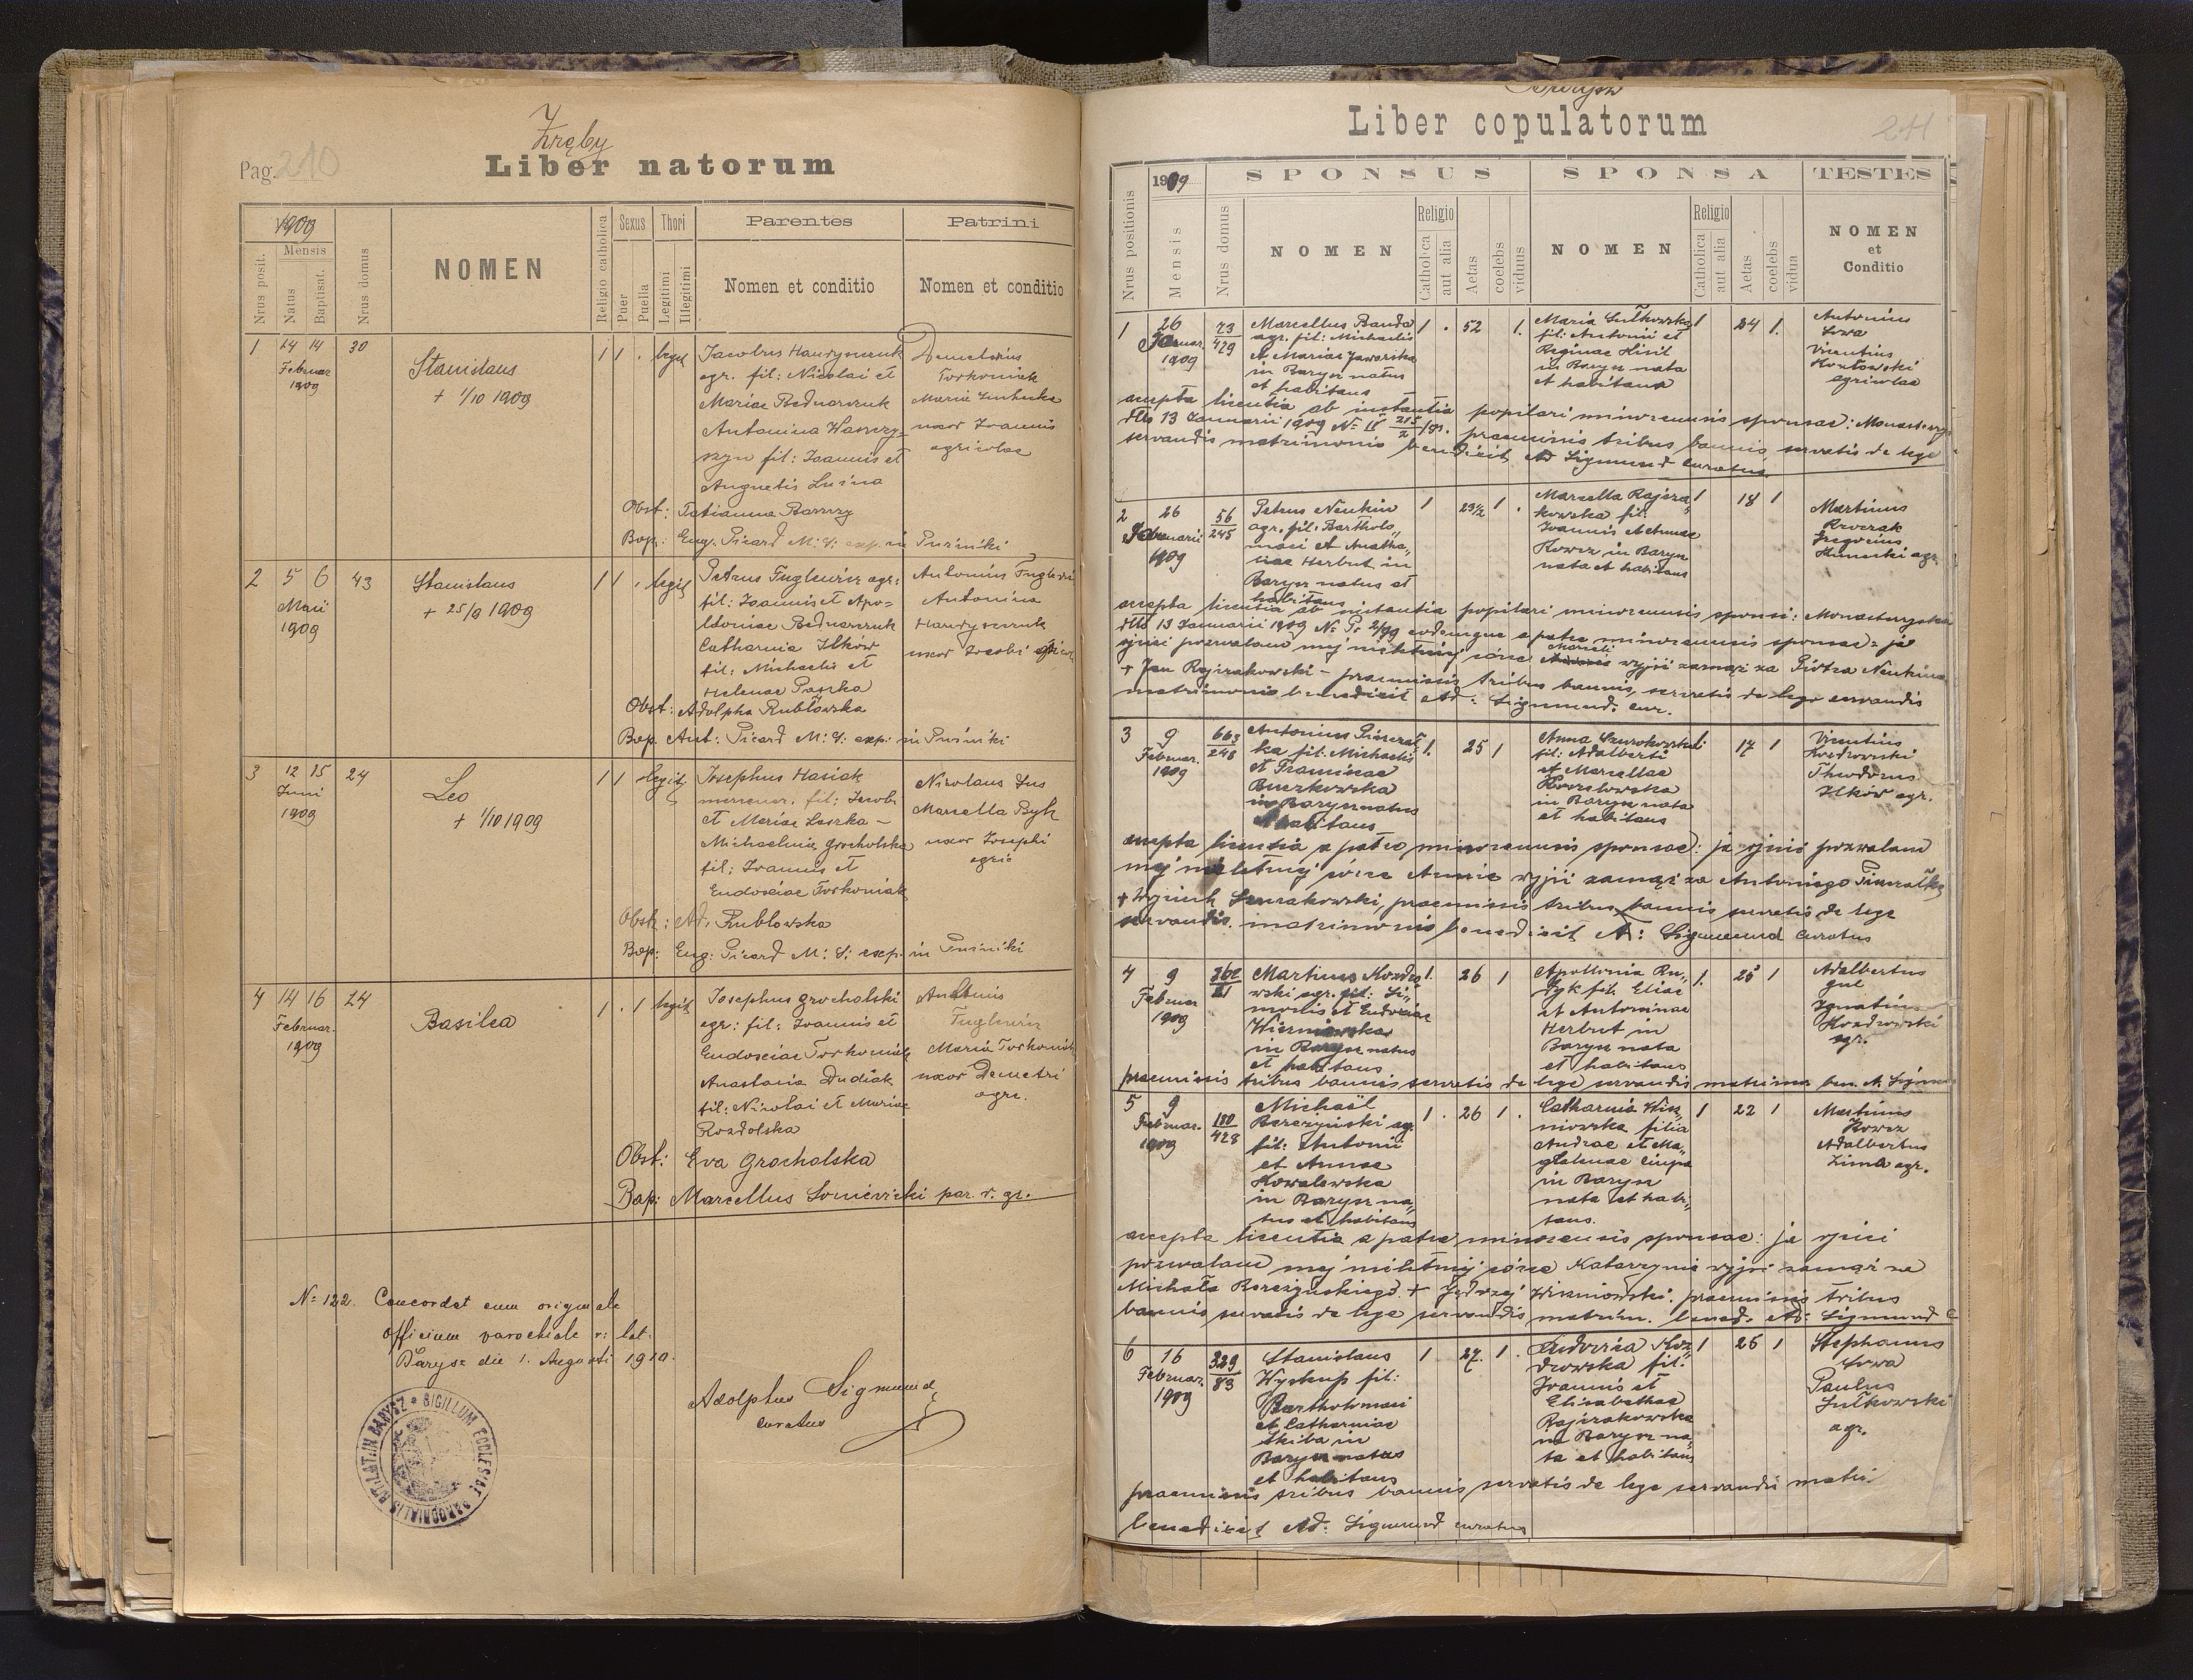 Zręby
Pag. 210
Liber natorum
1909
Nrus posit.
Mensis
Natus
Baptisat.
Nrus domus
NOMEN
Religio catholica
Sexus
Puer
Puella
Thori
Legitimi
Illegitimi
Parentes
Nomen et conditio
Patrini
Nomen et conditio
1
14 14
Februar
1909
30
Stanislaus
+ 1/10 1909
1 1 . legit
Jacobus Handymczuk
agr. fil: Nicolai et
Mariae Bednarczuk
Antonina
fil: Joannis et
Agnetis
Demetrius
Torkoniak
Maria
uxor Joannis
agricolae
Obst: Tatianna
Bap: Eug. Picard M: S: exp. in Puźniki
2
5 6
Maii
1909
43
Stanislaus
+ 25/9 1909
1 1 . legit
Petrus Fuglewicz agr:
fil: Joannis et Apo=
loniae Bednarczuk
Catharina Ilków
fil: Michaelis et
Helenae Paszka
Antonius Fuglewicz
Antonina
uxor Jacobi agricol
Obst: Adolpha Rublowska
Bap. Ant: Picard M: S: exp: in Puźniki
3
12 15
Juni
1909
24
Leo
+ 1/10 1909
1 1 . legit
Josephus Hasiak
fil: Jacobi
et Mariae Laszka -
Michaelina Grocholska
fil: Joannis et
Eudosciae Torkoniak
Nicolaus Jus
Marcella Byk
uxor Josephi
agric
Obst: Ad. Rublowska
Bap: Eug: Picard M: S: exp. in Puźniki
4
14 16
Februar.
1909
24
Basilea
1 . 1 legit
Josephus Grocholski
agr: fil: Joannis et
Eudosciae Torkoniak
Anastasia Dudiak
fil: Nicolai et Mariae
Rozdolska
Antonius
Fuglewicz
Maria Torkoniak
uxor Demetri
agr.
Obst: Eva Grocholska
Bap: Marcellus Soniewicki par. r. gr.
N= 122. Concordat cum originale
Officium parochiale r: lat:
Barysz die 1. Augusti 1910.
Adolphus Sigmund
curatus
SIGILLUM ECCLESIAE PAROCHIALIS RIT. LAT. IN BARYSZ
Barysz
Liber copulatorum
211
Nrus positionis
1909
Mensis
Nrus domus
SPONSUS
NOMEN
Religio
Catholica
aut alia
Aetas
coelebs
viduus
SPONSA
NOMEN
Religio
Catholica
aut alia
Aetas
coelebs
vidua
TESTES
NOMEN
et
Conditio
1
26
Januar.
1909
73
429
Marcellus Banda
agr. fil: Michaelis
et Mariae Jaworska
in Barysz natus
et habitans
1 . 52 1.
Maria Sulkowska
fil: Antonii et
Reginae Kisil
in Barysz nata
et habitans
1 24 1.
Antonius
Sowa
Vincentius
Kozłowski
agricolae
accepta licentia ab instantia popilari minorennis sponsae: Monasterzys
dtto 13 Januarii 1909 N= II 215/2 /9. praemissis tribus bannis servatis de lege
servandis matrimonio benedixit Ad Sigmund curatus
2
26
Februarii
1909
56
245
Petrus Neukin
agr. fil: Bartholo„
maei et Anasta„
siae Herbut in
Barysz natus et
habitans
1 23 1/2 1 .
Marcella Rajcza„
kowska fil:
Joannis et Annae
Kowcz in Barysz
nata et habitans
1 18 1
Martinus
Krwczak
Gregorius
Huniecki agr.
accepta licentia ab instantia popilari minorennis sponsi: Monasterzyska
dtto 13 Januarii 1909 N= Pr 2/99 eodemque a patre minorennis sponsae: ja
ojciec pozwalam mej nieletniej córce Marceli wyjść zamąż za Piotra Neukina
+ Jan Rajczakowski - praemissis tribus bannis, servatis de lege servandis
matrimonio benedixit Ad: Sigmund. cur.
3
9
Februar.
1909
663
248
Antonius
ka fil: Michaelis
et Franciscae
Buczkowska
in Barysz natus
et habitans
1. 25 1
Anna
fil: Adalberti
et Marcellae
Kozłowska
in Barysz nata
et habitans
17 1
Vicentius
Kozdrowski
Theodorus
Ilków agr.
accepta licentia a patre minorennis sponsae: ja ojciec pozwalam
mej nieletniej córce Annie wyjść zamąż za Antoniego
+ Wojciech praemissis tribus bannis servatis de lege
servandis. matrimonio benedixit A: Sigmund Curatus
4
9
Februar
1909
362
21
Martinus Kozdro„
wski agr. fil: Si„
monis et Eudociae
Wiśniowska
in Barysz natus
et habitans
1. 26 1
Apollonia Ru„
dyk fil. Eliae
et Antoninae
Herbut in
Barysz nata
et habitans
1. 25 1
Adalbertus
Gul
Ignatius
Kozdrowski
agr.
praemissis tribus bannis servatis de lege servandis matrimo ben. A. Sigmund
5
9
Februar.
1909
180
428
Michaël
Bereżyński ag.
fil: Antonii
et Annae
Kowalewska
in Barysz na„
tus et habitans
1 . 26 1 .
Catharina Wisz„
niowska filia
Andrae et Ma„
gdalenae Ciupa
in Barysz
nata et habi„
tans.
1 22 1
Martinus
Kowcz
Adalbertus
Zima agr.
accepta licentia a patre minorennis sponsae: ja ojciec
pozwalam mej nieletniej córce Katarzynie wyjść zamąż za
Michała Bereżyńskiego. + Jędrzej Wiśniowski. praemissis tribus
bannis servatis de lege servandis matrim. bened. Ad: Sigmund C
6
16
Februar.
1909
329
83
Stanislaus
Wyskup fil:
Bartholomaei
et Catharinae
Skiba in
Barysz natus
et habitans
1 27. 1 .
Ludovica Koz„
drowska fil:
Joannis et
Elisabethae
Rajczakowska
in Barysz na„
ta et habitans
1 25 1
Stephanus
Sowa
Paulus
Sulkowski
agr.
praemissis tribus bannis servatis de lege servandis matri
benedixit Ad: Sigmund curatus